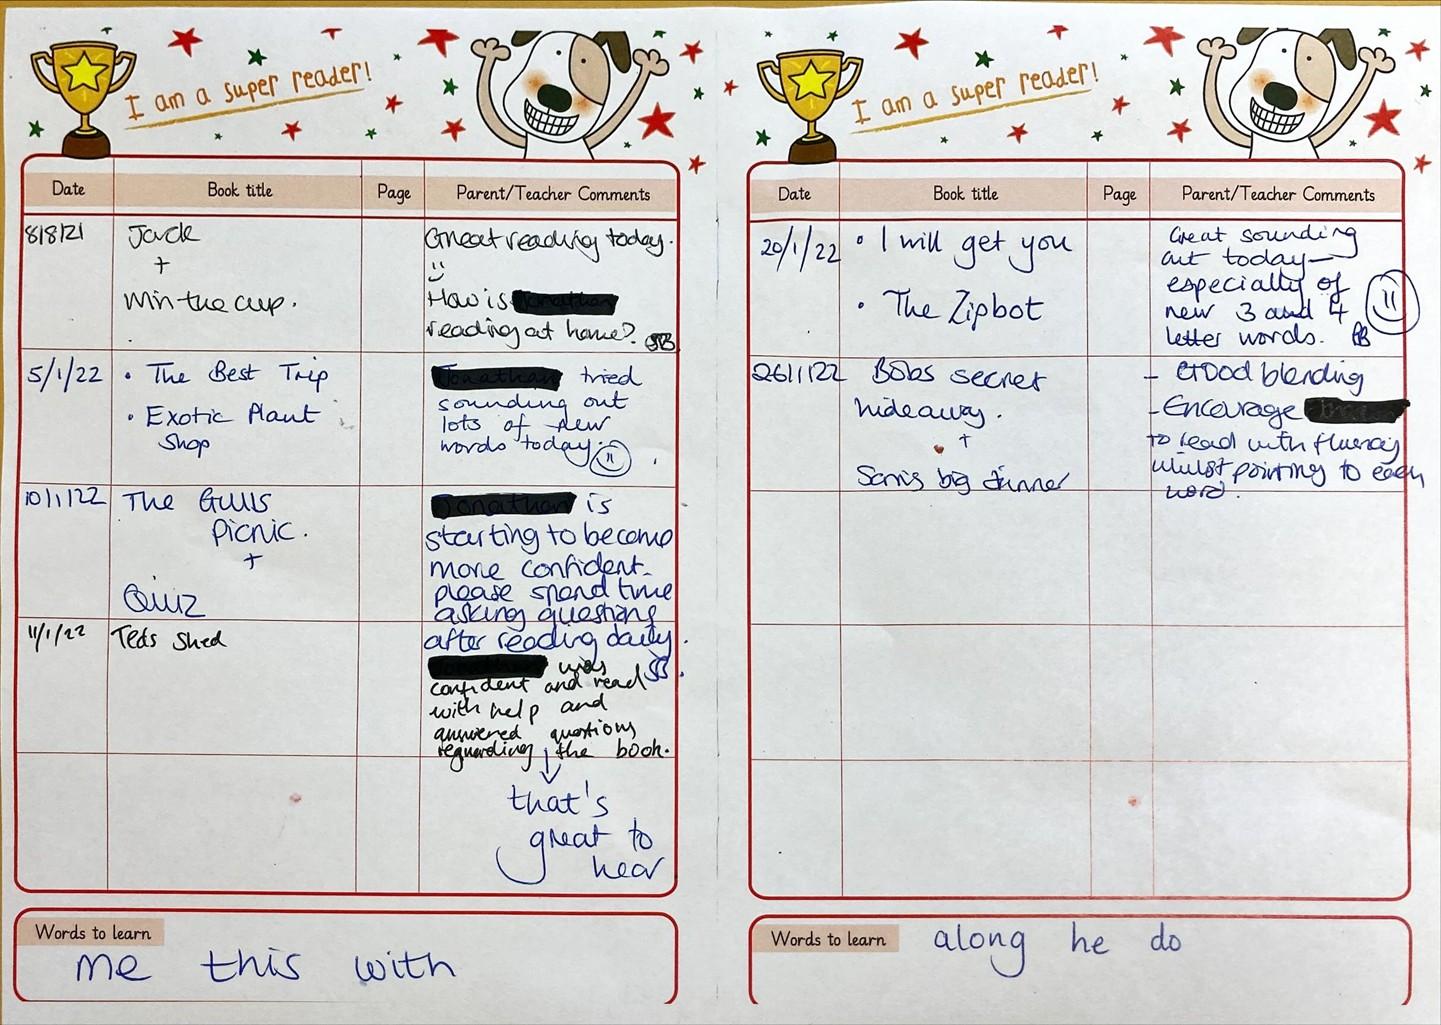 I am a super reader!
Date Book title Page Parent/Teacher Comments
8/8/21
Jack
+
Win the cup.
Great reading today.
How is
reading at home? SB
5/1/22
• The Best Trip
• Exotic Plant
Shop
tried
sounding out
lots of new
words today.
10/1/22
The Gulls
Picnic.
+
Quiz
is
starting to become
more confident.
please spend time
asking questions
after reading daily.
SB.
11/1/22
Teds Shed
was
confident and read
with help and
answered questions
reguarding the book.
that's
great to
hear
Words to learn
me this with
I am a super reader!
Date Book title Page Parent/Teacher Comments
20/1/22
• I will get you
• The Zipbot
Great sounding
out today—
especially of
new 3 and 4
letter words.
26/1/22
Bobs secret
hideaway.
+
Sam's big dinner
- Good blending
- Encourage
to read with fluency
whilst pointing to each
word.
Words to learn
along he do